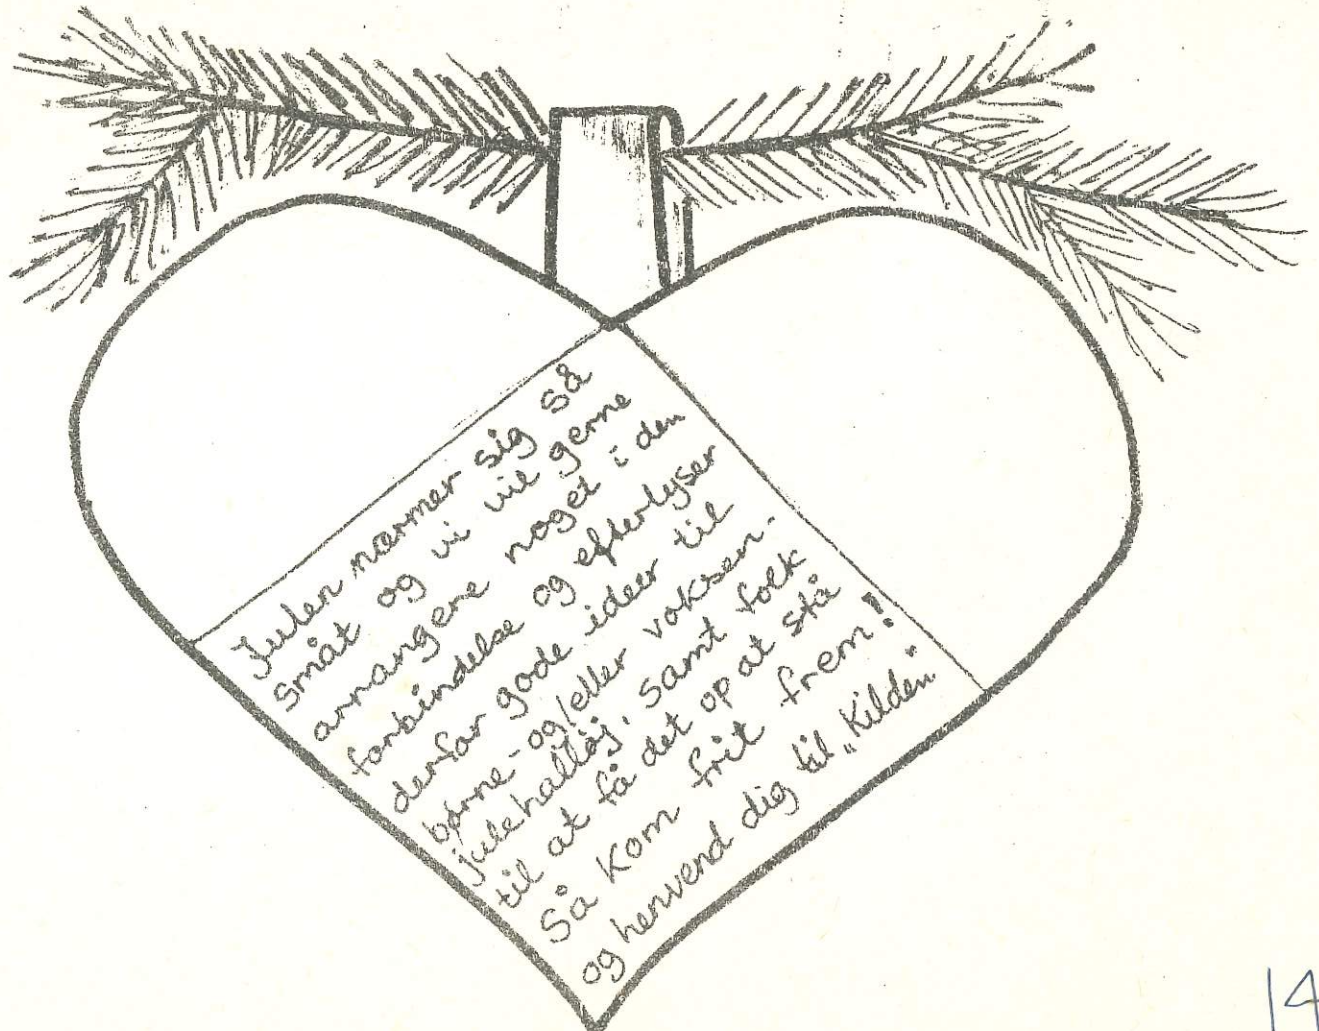 Julen nærmer sig så
småt og vi vil gerne
arrangere noget i den
forbindelse og efterlyser
derfor gode ideer til
børne- og/eller voksen-
julehalløj, samt folk
til at få det op at stå
Så kom frit frem!
og henvend dig til „Kilden"
14